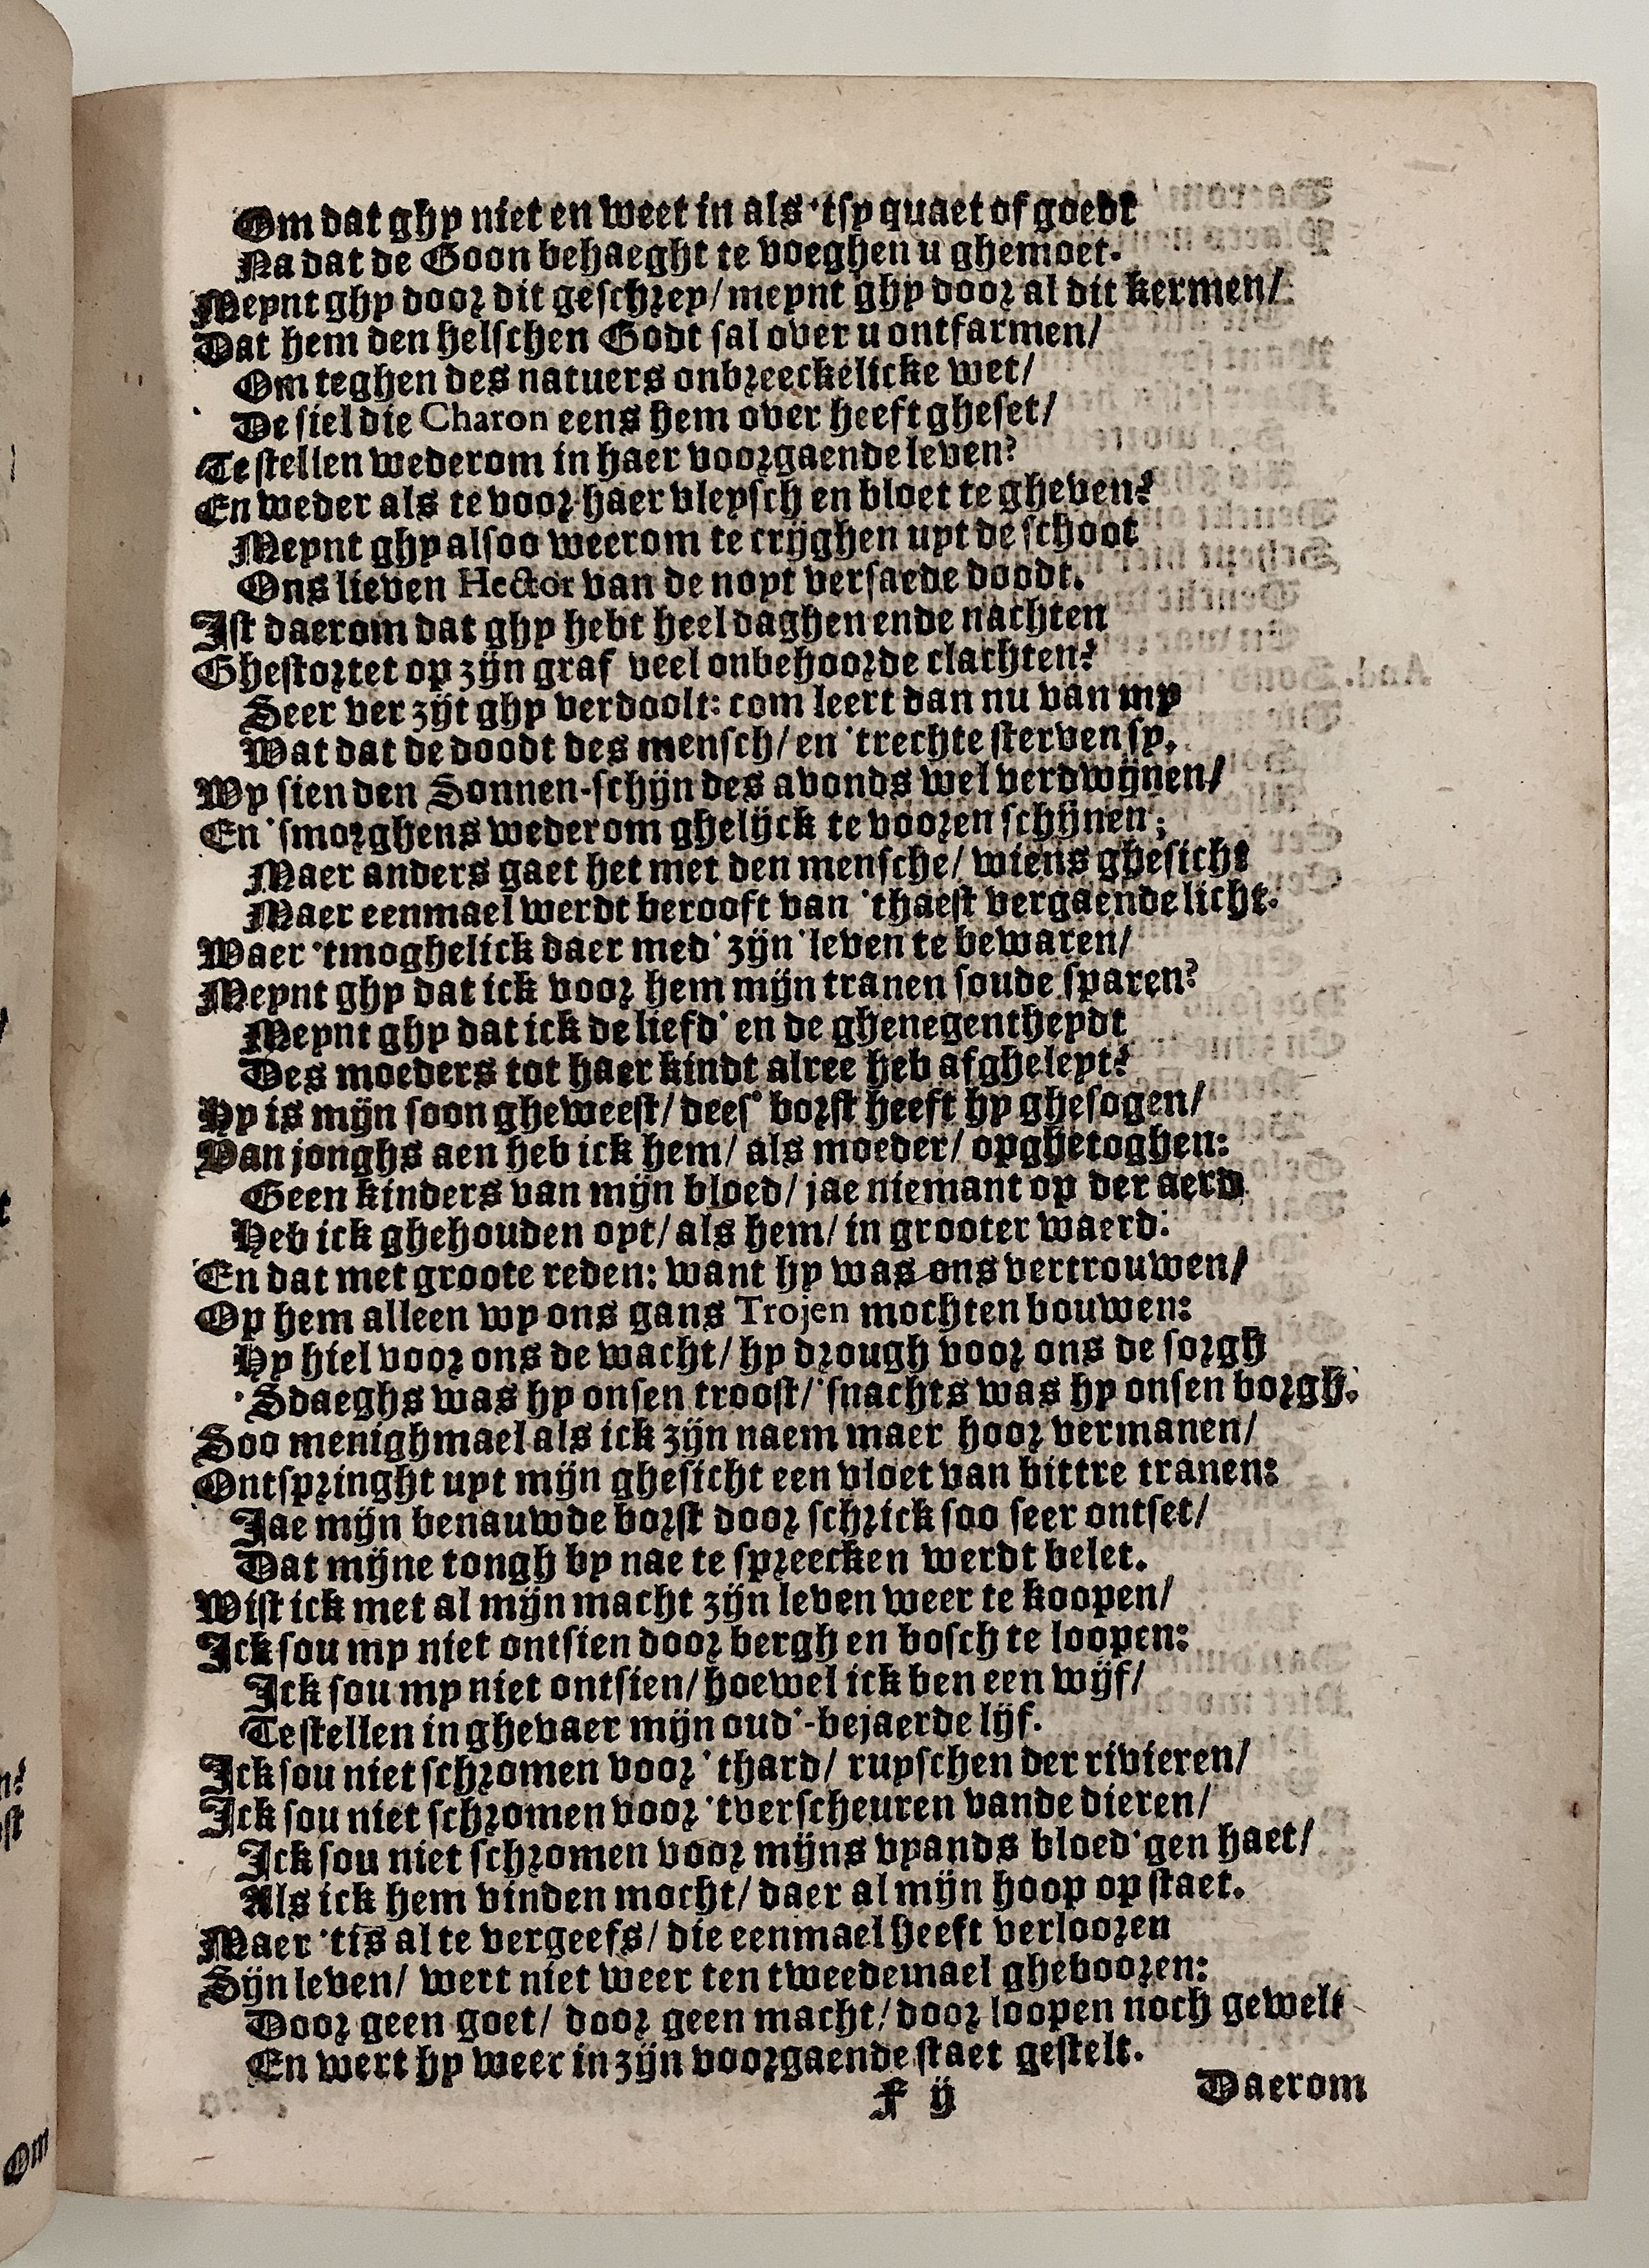 Om dat ghy niet en weet in als 'tsy quaet of goedt
Na dat de Goon behaeght te voeghen u ghemoet.
Meynt ghy door dit geschrey/ meynt ghy door al dit kermen/
Dat hem den helschen Godt sal over u ontfarmen/
Om teghen des natuers onbreeckelicke wet/
De siel die Charon eens hem over heeft gheset/
Te stellen wederom in haer voorgaende leven?
En weder als te voor haer vleysch en bloet te gheven?
Meynt ghy alsoo weerom te crijghen uyt de schoot
Ons lieven Hector van de noyt versaede doodt.
Ist daerom dat ghy hebt heel daghen ende nachten
Ghestortet op zijn graf veel onbehoorde clachten?
Seer ver zijt ghy verdoolt: com leert dan nu van my
Wat dat de doodt des mensch/ en 'trechte sterven sy.
Wy sien den Sonnen-schijn des avonds wel verdwijnen/
En 'smorghens wederom ghelijck te vooren schijnen;
Maer anders gaet het met den mensche/ wiens ghesicht
Maer eenmael werdt berooft van 'thaest vergaende licht.
Waer 'tmoghelick daer med' zijn 'leven te bewaren/
Meynt ghy dat ick voor hem mijn tranen soude sparen?
Meynt ghy dat ick de liefd' en de ghenegentheydt
Des moeders tot haer kindt alree heb afgheleyt?
Hy is mijn soon gheweest/ dees' borst heeft hy ghesogen/
Van jonghs aen heb ick hem/ als moeder/ opghetoghen:
Geen kinders van mijn bloed/ jae niemant op der aerd
Heb ick ghehouden oyt/ als hem/ in grooter waerd:
En dat met groote reden: want hy was ons vertrouwen/
Op hem alleen wy ons gans Trojen mochten bouwen:
Hy hiel voor ons de wacht/ hy drough voor ons de sorgh
'Sdaeghs was hy onsen troost/ 'snachts was hy onsen borgh.
Soo menighmael als ick zijn naem maer hoor vermanen/
Ontspringht uyt mijn ghesicht een vloet van bittre tranen:
Jae mijn benauwde borst door schrick soo seer ontset/
Dat mijne tongh by nae te spreecken werdt belet.
Wist ick met al mijn macht zijn leven weer te koopen/
Ick sou my niet ontsien door bergh en bosch te loopen:
Ick sou my niet ontsien/ hoewel ick ben een wijf/
Te stellen in ghevaer mijn oud'-bejaerde lijf.
Ick sou niet schromen voor 'thard/ ruyschen der rivieren/
Ick sou niet schromen voor 'tverscheuren vande dieren/
Ick sou niet schromen voor mijns vyands bloed'gen haet/
Als ick hem vinden mocht/ daer al mijn hoop op staet.
Maer 'tis al te vergeefs/ die eenmael heeft verlooren
Sijn leven/ wert niet weer ten tweedemael ghebooren:
Door geen goet/ door geen macht/ door loopen noch gewelt
En wert hy weer in zijn voorgaende staet gestelt.
F ij
Daerom
Om